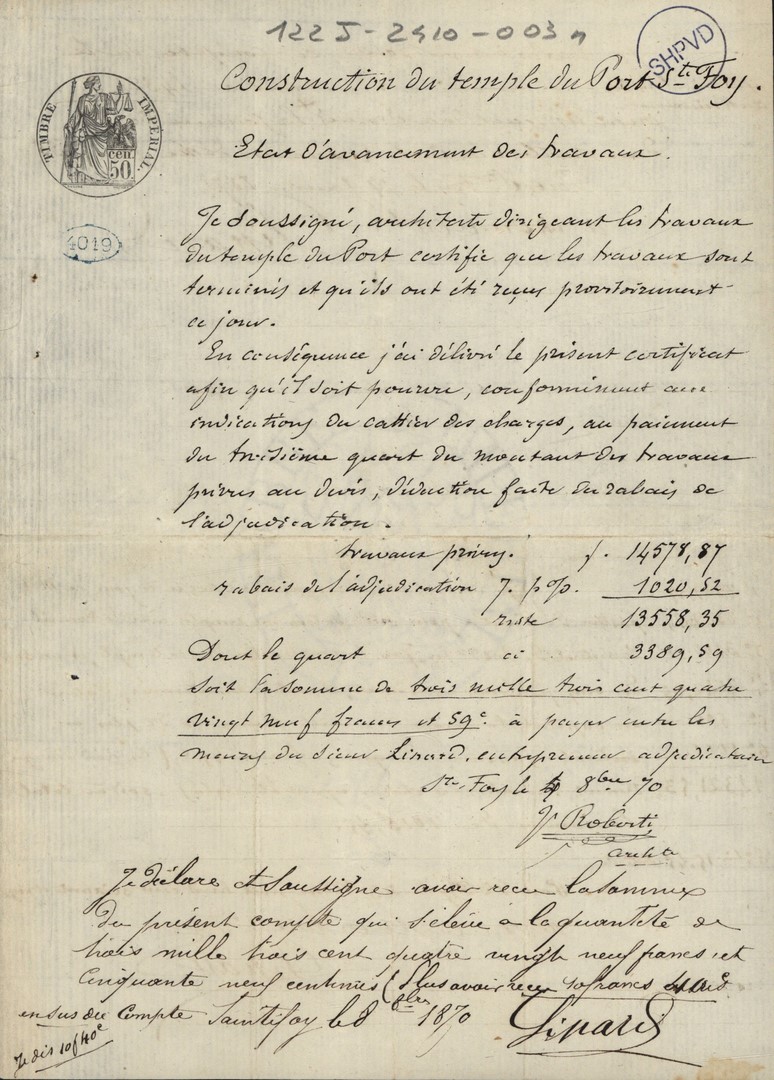 122 J - 2410 - 003 n
SHPVD
Construction du temple du Port Ste Foy.
TIMBRE IMPERIAL
cen. 50
Etat d'avancement des travaux.
4019
Je soussigné, architecte dirigeant les travaux
du temple du Port certifie que les travaux sont
terminés et qu'ils ont été reçus provisoirement
ce jour.
En conséquence j'ai délivré le présent certificat
afin qu'il soit pourvu, conformément aux
indications du cahier des charges, au paiement
du troisième quart du montant des travaux
prévus au devis, déduction faite du rabais de
l'adjudication.
travaux prévus. f. 14578,87
rabais de l'adjudication 7. p %. 1020,52
reste 13558,35
Dont le quart ci 3389,59
soit la somme de trois mille trois cent quatre
vingt neuf francs et 59c. à payer entre les
mains du sieur Linard, entrepreneur adjudicataire
Ste Foy le 8bre 70
Roberti
archte
Je déclare et Soussigne avoir recu la Somme
du présent compte qui s'éleve à la quantité de
trois mille trois cent quatre vingt neuf francs et
Cinquante neuf centimes (Plus avoir recu 10 francs 40c
en sus du Compte Saintefoy le 8 8bre 1870 Linard
Je dis 10f 40c